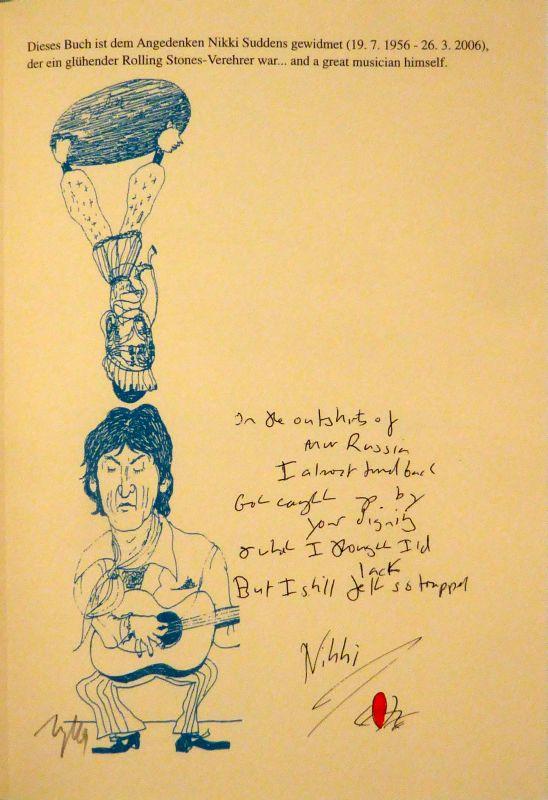 Dieses Buch ist dem Angedenken Nikki Suddens gewidmet (19. 7. 1956 - 26. 3. 2006),
der ein glühender Rolling Stones-Verehrer war... and a great musician himself.
On the outskirts of
Russia
I almost turned back
Got caught up by
your dignity
& what I thought I'd
lack
But I still felt so trapped
Nikki